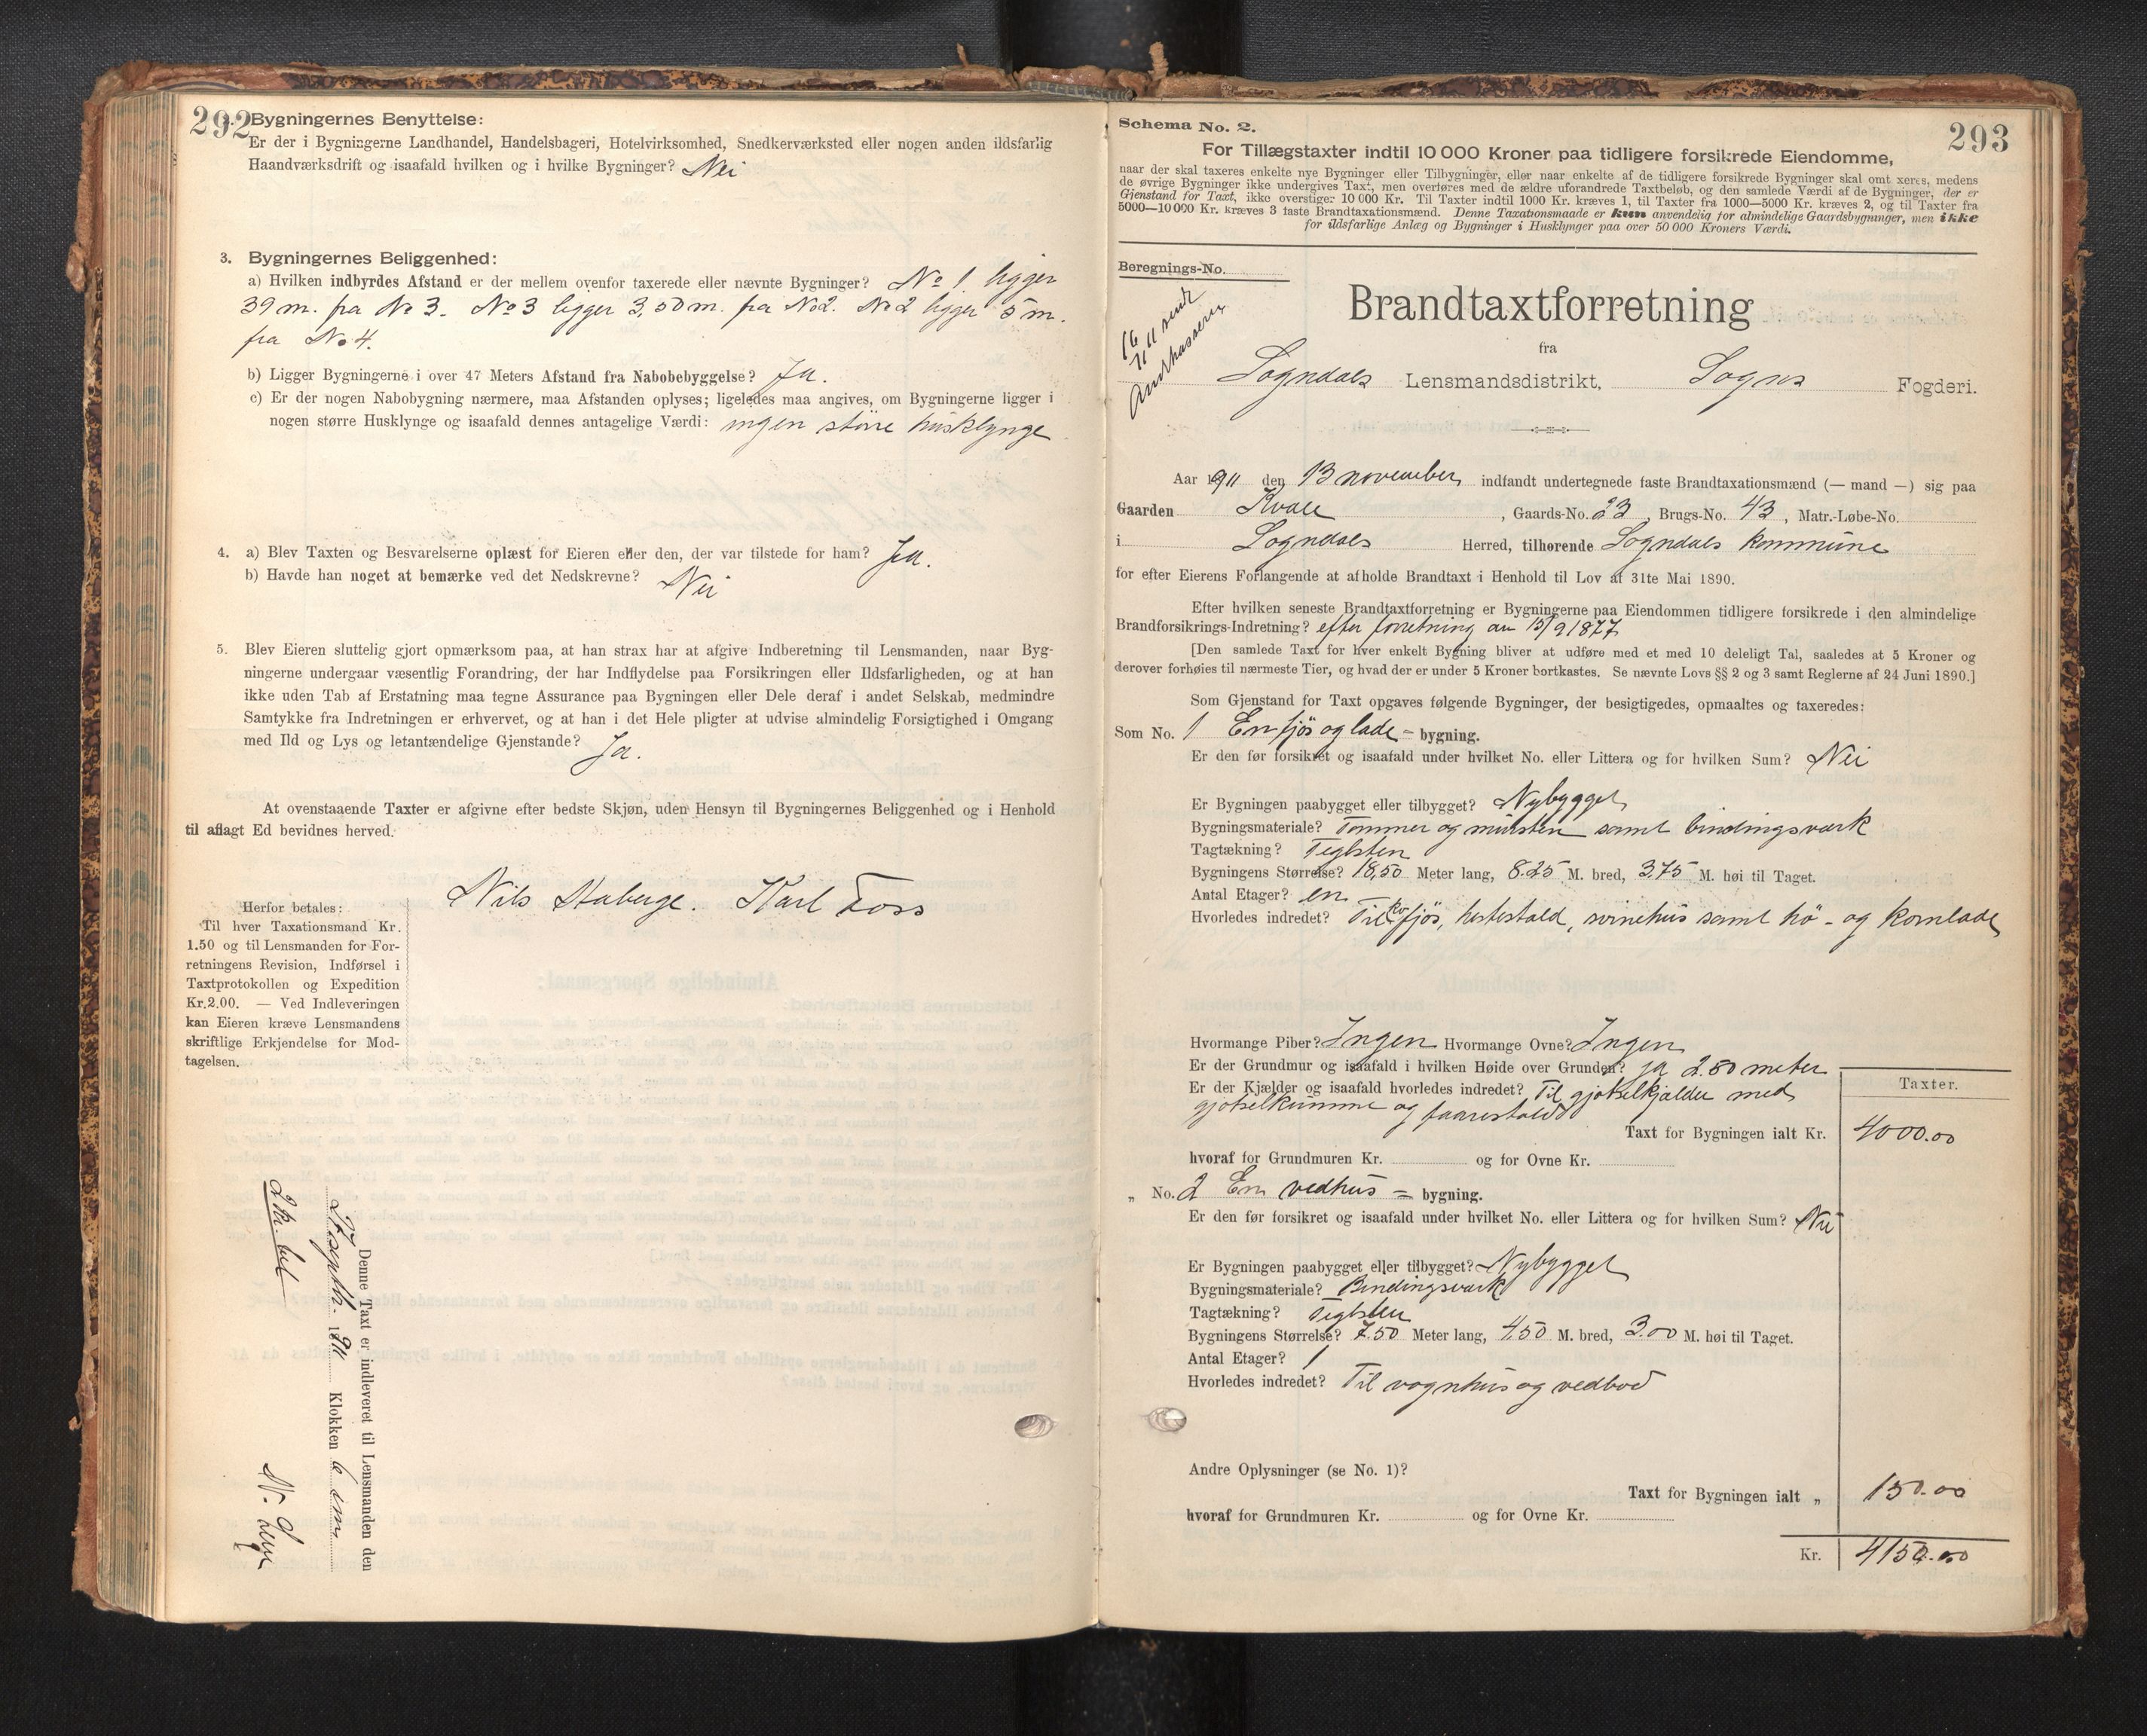 292
2. Bygningernes Benyttelse:
Er der i Bygningerne Landhandel, Handelsbageri, Hotelvirksomhed, Snedkerværksted eller nogen anden ildsfarlig
Haandværksdrift og isaafald hvilken og i hvilke Bygninger? Nei
3. Bygningernes Beliggenhed:
a) Hvilken indbyrdes Afstand er der mellem ovenfor taxerede eller nævnte Bygninger? No 1 ligger
39 m. fra No 3. No 3 ligger 3,50 m. fra No 2. No 2 ligger 5 m.
fra No 4.
b) Ligger Bygningerne i over 47 Meters Afstand fra Nabobebyggelse? Ja.
c) Er der nogen Nabobygning nærmere, maa Afstanden oplyses; ligeledes maa angives, om Bygningerne ligger i
nogen større Husklynge og isaafald dennes antagelige Værdi: ingen større husklynge
4. a) Blev Taxten og Besvarelserne oplæst for Eieren eller den, der var tilstede for ham? Ja.
b) Havde han noget at bemærke ved det Nedskrevne? Nei
5. Blev Eieren sluttelig gjort opmærksom paa, at han strax har at afgive Indberetning til Lensmanden, naar Byg-
ningerne undergaar væsentlig Forandring, der har Indflydelse paa Forsikringen eller Ildsfarligheden, og at han
ikke uden Tab af Erstatning maa tegne Assurance paa Bygningen eller Dele deraf i andet Selskab, medmindre
Samtykke fra Indretningen er erhvervet, og at han i det Hele pligter at udvise almindelig Forsigtighed i Omgang
med Ild og Lys og letantændelige Gjenstande? Ja.
At ovenstaaende Taxter er afgivne efter bedste Skjøn, uden Hensyn til Bygningernes Beliggenhed og i Henhold
til aflagt Ed bevidnes herved.
Nils Staberge. Karl Foss
Herfor betales:
Til hver Taxationsmand Kr.
1.50 og til Lensmanden for For-
retningens Revision, Indførsel i
Taxtprotokollen og Expedition
Kr.2.00. — Ved Indleveringen
kan Eieren kræve Lensmandens
skriftlige Erkjendelse for Mod-
tagelsen.
Denne Taxt er indleveret til Lensmanden den
1911 Klokken 6 em.
2 kr. bet
293
Schema No. 2.
For Tillægstaxter indtil 10 000 Kroner paa tidligere forsikrede Eiendomme,
naar der skal taxeres enkelte nye Bygninger eller Tilbygninger, eller naar enkelte af de tidligere forsikrede Bygninger skal omt xeres, medens
de øvrige Bygninger ikke undergives Taxt, men overføres med de ældre uforandrede Taxtbeløb, og den samlede Værdi af de Bygninger, der er
Gjenstand for Taxt, ikke overstiger 10 000 Kr. Til Taxter indtil 1000 Kr. kræves 1, til Taxter fra 1000—5000 Kr. kræves 2, og til Taxter fra
5000—10 000 Kr. kræves 3 faste Brandtaxationsmænd. Denne Taxationsmaade er kun anvendelig for almindelige Gaardsbygninger, men ikke
for ildsfarlige Anlæg og Bygninger i Husklynger paa over 50 000 Kroners Værdi.
Beregnings-No.
16/11 11 sendt
Brandtaxtforretning
fra
Sogndals Lensmandsdistrikt, Sogns Fogderi.
Aar 1911 den 13 november indfandt undertegnede faste Brandtaxationsmænd (— mand —) sig paa
Gaarden Kvale, Gaards-No. 23, Brugs-No. 43, Matr.-Løbe-No.
i Sogndals Herred, tilhørende Sogndals kommune
for efter Eierens Forlangende at afholde Brandtaxt i Henhold til Lov af 31te Mai 1890.
Efter hvilken seneste Brandtaxtforretning er Bygningerne paa Eiendommen tidligere forsikrede i den almindelige
Brandforsikrings-Indretning? efter forretning av 15/9 1877
[Den samlede Taxt for hver enkelt Bygning bliver at udføre med et med 10 deleligt Tal, saaledes at 5 Kroner og
derover forhøies til nærmeste Tier, og hvad der er under 5 Kroner bortkastes. Se nævnte Lovs §§ 2 og 3 samt Reglerne af 24 Juni 1890.]
Som Gjenstand for Taxt opgaves følgende Bygninger, der besigtigedes, opmaaltes og taxeredes:
Som No. 1 En fjøs og lade - bygning.
Er den før forsikret og isaafald under hvilket No. eller Littera og for hvilken Sum? Nei
Er Bygningen paabygget eller tilbygget? Nybygget
Bygningsmateriale? Tømmer og mursten samt bindingsværk
Tagtækning? Teglsten
Bygningens Størrelse? 18,50 Meter lang, 8.25 M. bred, 3.75 M. høi til Taget.
Antal Etager? en
Hvorledes indredet? Til ko fjøs, hestestald, svinehus samt hø - og kornlade
Hvormange Piber? Ingen Hvormange Ovne? Ingen
Er der Grundmur og isaafald i hvilken Høide over Grunden? ja 2.50 meter
Er der Kjælder og isaafald hvorledes indredet? Til gjødselkjælder med
gjødselkumme og faarestald
Taxter.
Taxt for Bygningen ialt Kr. 4000.00
hvoraf for Grundmuren Kr. og for Ovne Kr.
„ No. 2 En vedhus = bygning.
Er den før forsikret og isaafald under hvilket No. eller Littera og for hvilken Sum? Nei
Er Bygningen paabygget eller tilbygget? Nybygget
Bygningsmateriale? Bindingsværk
Tagtækning? Teglsten
Bygningens Størrelse? 7.50 Meter lang, 4.50 M. bred, 3.00 M. høi til Taget.
Antal Etager? 1
Hvorledes indredet? Til vognhus og vedbod
Andre Oplysninger (se No. 1)?
Taxt for Bygningen ialt „ 150.00
hvoraf for Grundmuren Kr. og for Ovne Kr.
Kr. 4150.00